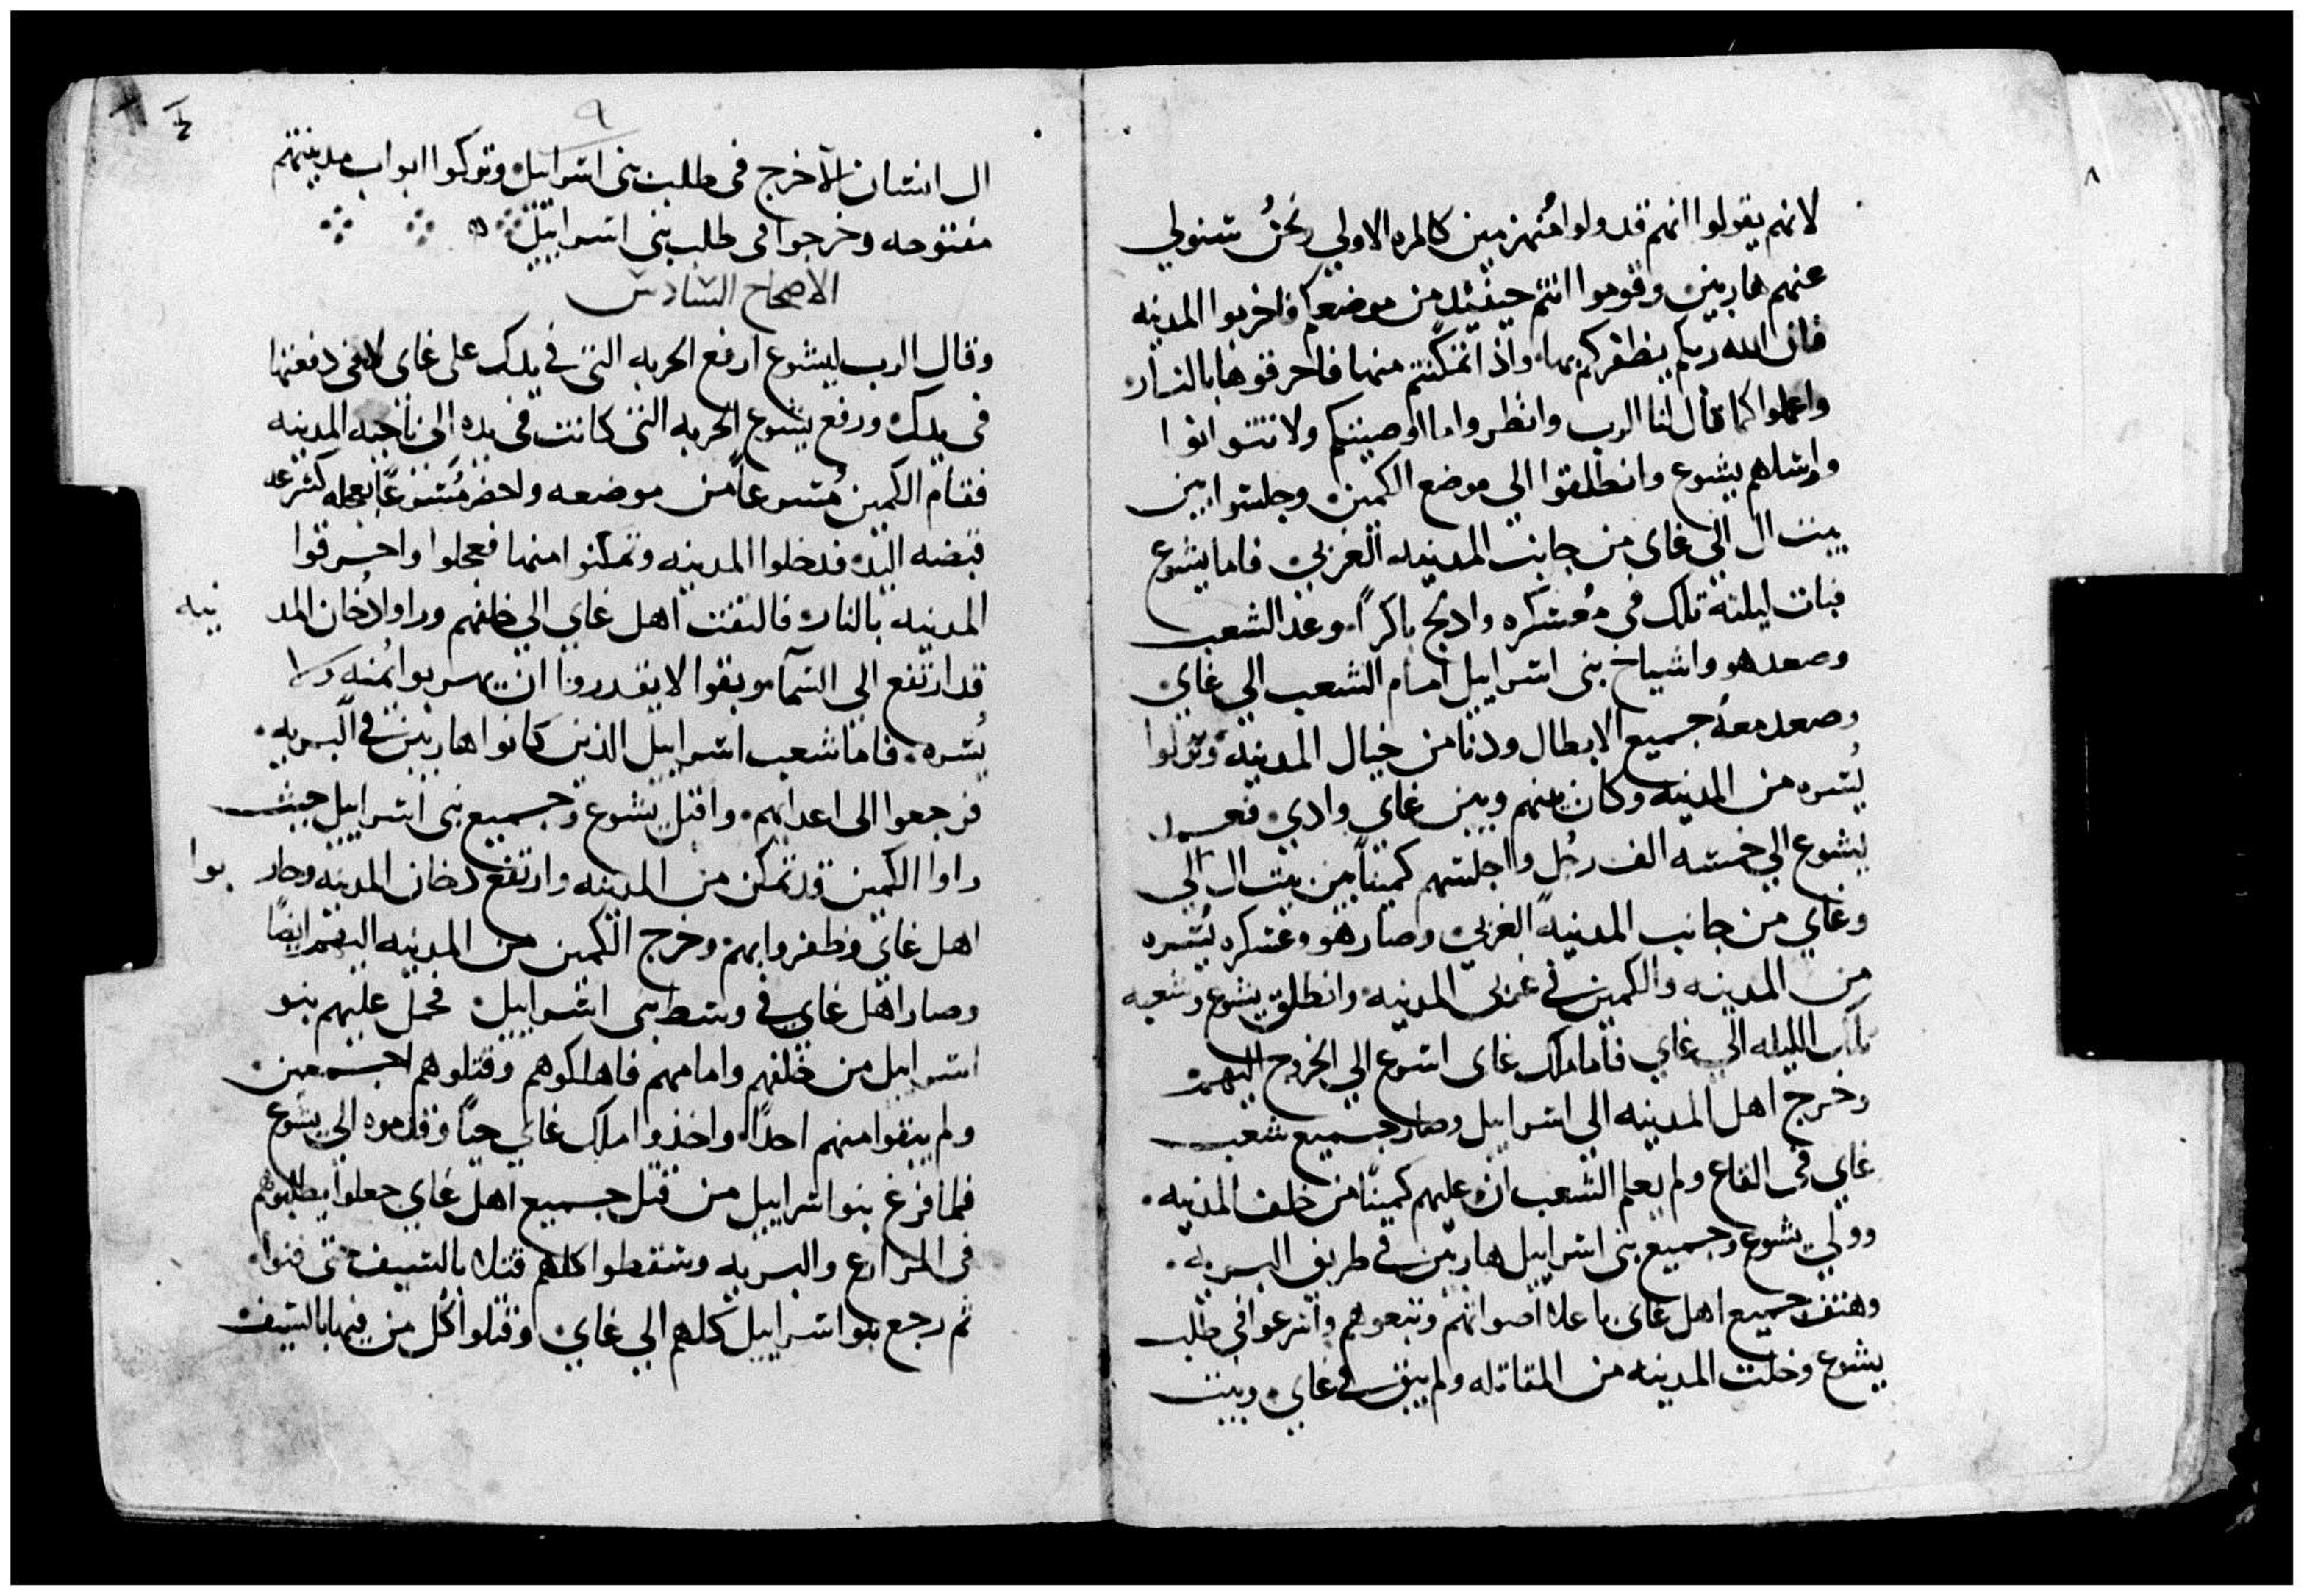 ٨
لانهم يقولوا انهم قد ولوا مُنهزمين كالمره الاولي نحنُ سنولي
عنهم هاربين وقوموا انتم حينئذ من موضعكم واخربوا المدينه
فان الله ربكم يظفركم بها واذا تمكنتم منها فاحرقوها بالنار
واعملوا كما قال لنا الرب وانظروا ما اوصيتكم ولا تتوانوا
وارسلهم يشوع وانطلقوا الي موضع الكمين وجلسوا بين
بيت ال الي غاي من جانب المدينه الغربي فاما يشوع
فبات ليلته تلك في مُعسكره وادلج باكراً وعد الشعب
وصعد هو واشياخ بني اسراييل امام الشعب الي غاي
وصعد معه جميع الابطال ودنا من خيال المدينه وتولوا
يُسره من المدينه وكان بينهم وبين غاي وادي فعمد
يشوع الي خمسه الف رجُل واجلسهم كميناً بين بيت ال الي
وغاي من جانب المدينة الغربي وصار هو وعسكره يُسره
من المدينه والكمين في غربي المدينه وانطلق يشوع وشعبه
تلك الليله الي غاي فاما ملك غاي اسرع الي الخروج اليهم
وخرج اهل المدينه الي اسراييل وصار جميع شعب
غاي في القاع ولم يعلم الشعب ان عليهم كميناً من خلف المدينه
وولي يشوع وجميع بني اسراييل هاربين في طريق البريه
وهتف جميع اهل غاي باعلا اصواتهم وتبعوهم واسرعوا في طلب
يشوع وخلت المدينه من المقاتله ولم يبق في غاي وبيت
٩
ال انسان الا خرج في طلب بني اسراييل وتركوا ابواب مدينتهم
مفتوحه وخرجوا في طلب بني اسراييل
الاصحاح السادس
وقال الرب ليشوع ارفع الحربه التي في يدك علي غاي لانني دفعتها
في يدك ورفع يشوع الحربه التي كانت في يده الي ناحيه المدينه
فقام الكمين مُسرعاً من موضعه واحضر مُسرعاً بعجله
قبضه اليد فدخلوا المدينه وتمكنوا منها فعجلوا واحرقوا
المدينه بالنار فالتفت اهل غاي الي خلفهم وراوا دُخان المد ينه
قد ارتفع الي السمآ وبقوا لا يقدروا ان يهربوا يُمنه ولا
يُسره فاما شعب اسراييل الذين كانوا هاربين في البريه
فرجعوا الي اعدايهم واقبل يشوع وجميع بني اسراييل حيث
راوا الكمين قد تمكن من المدينه وارتفع دخان المدينه وحار بوا
اهل غاي وظفروا بهم وخرج الكمين من المدينه اليهم ايضاً
وصار اهل غاي في وسط بني اسراييل فحمل عليهم بنو
اسراييل من خلفهم وامامهم فاهلكوهم وقتلوهم اجمعين
ولم يبقوا منهم احداً واخذوا ملك غاي حياً وقدموه الي يشوع
فلما فرغ بنو اسراييل من قتل جميع اهل غاي جعلوا يطلبوهم
في المزارع والبريه وسقطوا كلهم قتلا بالسيف حتي فنوا
ثم رجع بنو اسراييل كلهم الي غاي وقتلوا كُل من فيها بالسيف